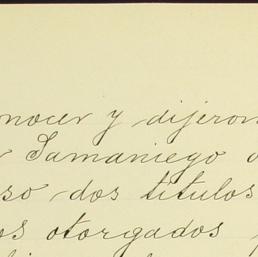 nocer y dijeron
Samaniego
so dos titulos
os otorgados